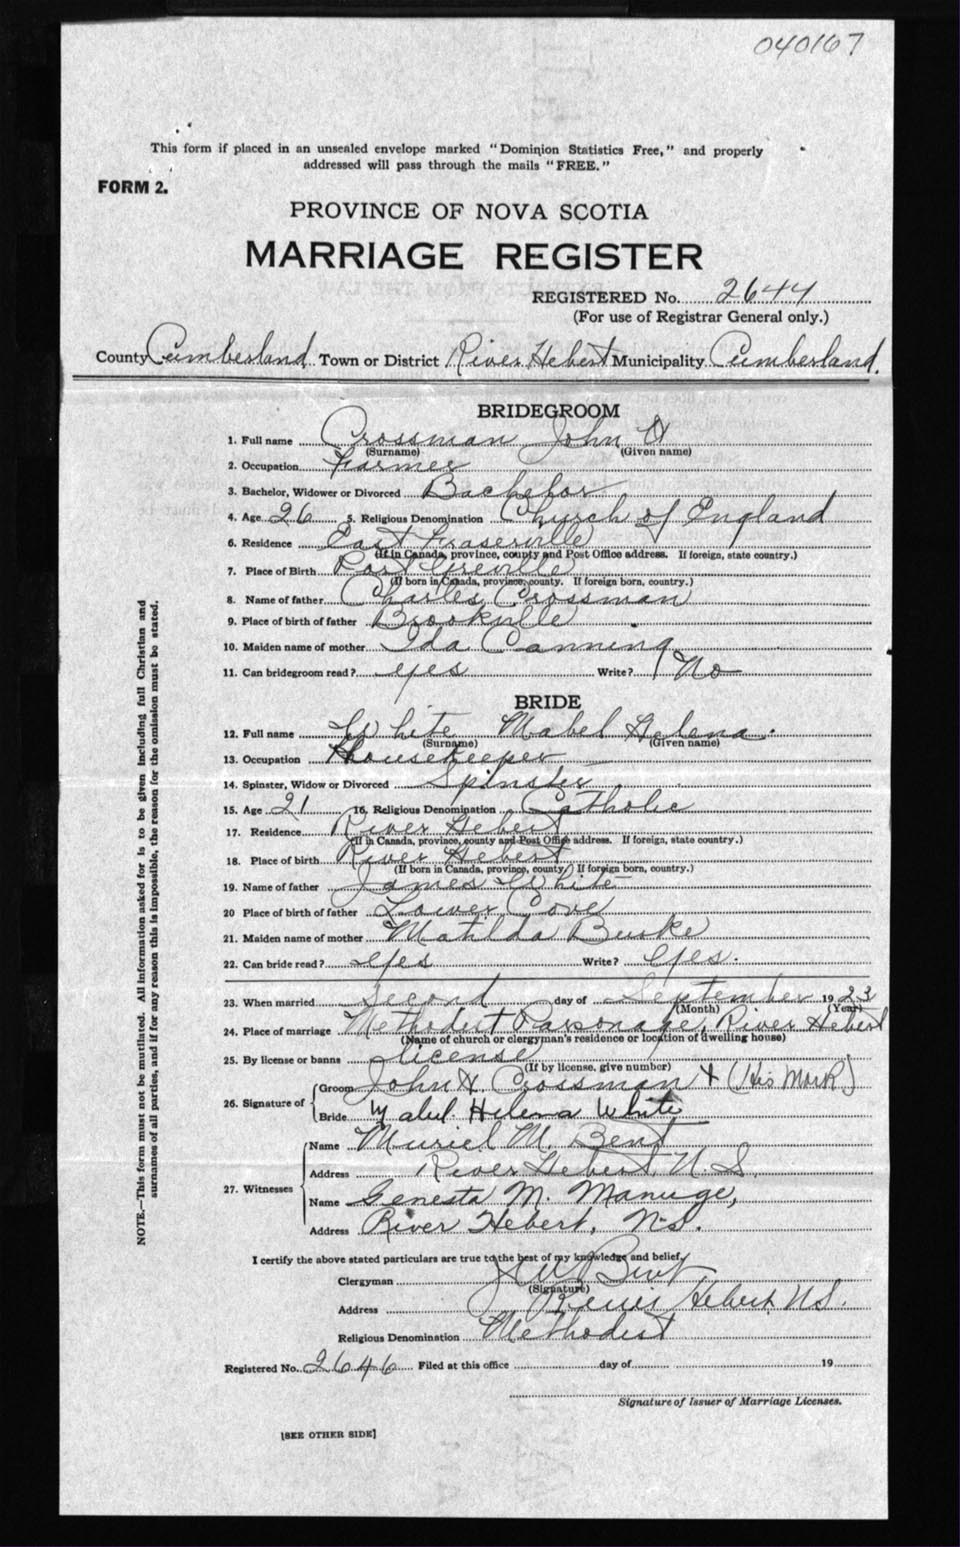 040167
This form if placed in an unsealed envelope marked "Dominion Statistics Free," and properly
addressed will pass through the mails "FREE."
FORM 2.
PROVINCE OF NOVA SCOTIA
MARRIAGE REGISTER
REGISTERED No. 2644
(For use of Registrar General only.)
County Cumberland Town or District River Hebert Municipality Cumberland.
BRIDEGROOM
1. Full name Crossman John H
(Surname) (Given name)
2. Occupation Farmer
3. Bachelor, Widower or Divorced Bachelor
4. Age 26 5. Religious Denomination Church of England
6. Residence East Fraserville
(If in Canada, province, county and Post Office address. If foreign, state country.)
7. Place of Birth Port Greville
(If born in Canada, province, county. If foreign born, country.)
8. Name of father Charles Crossman
9. Place of birth of father Brookville
10. Maiden name of mother Ida Canning
11. Can bridegroom read? yes Write? No
BRIDE
12. Full name White Mabel Helena.
(Surname) (Given name)
13. Occupation Housekeeper
14. Spinster, Widow or Divorced Spinster
15. Age 21 16. Religious Denomination Catholic
17. Residence River Hebert
(If in Canada, province, county and Post Office address. If foreign, state country.)
18. Place of birth River Hebert
(If born in Canada, province, county. If foreign born, country.)
19. Name of father James White
20 Place of birth of father Lower Cove
21. Maiden name of mother Matilda Burke
22. Can bride read? yes Write? yes.
23. When married Second day of September 1923
(Month) (Year)
24. Place of marriage Methodist Parsonage, River Hebert
(Name of church or clergyman's residence or location of dwelling house)
25. By license or banns license
(If by license, give number)
26. Signature of Groom John H. Crossman + (His Mark)
Bride Mabel Helena White
27. Witnesses Name Muriel M. Bent
Address River Hebert N.S.
Name Genesta M. Manuge,
Address River Hebert, N.S.
I certify the above stated particulars are true to the best of my knowledge and belief.
Clergyman Bent
(Signature)
Address River Hebert, N.S.
Religious Denomination Methodist
Registered No. 2646 Filed at this office day of 19
Signature of Issuer of Marriage Licenses.
[SEE OTHER SIDE]
NOTE.—This form must not be mutilated. All information asked for is to be given including full Christian and
surnames of all parties, and if for any reason this is impossible, the reason for the omission must be stated.